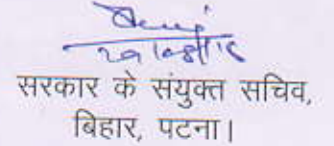 सरकार के संयुक्त सचिव,
बिहार, पटना।